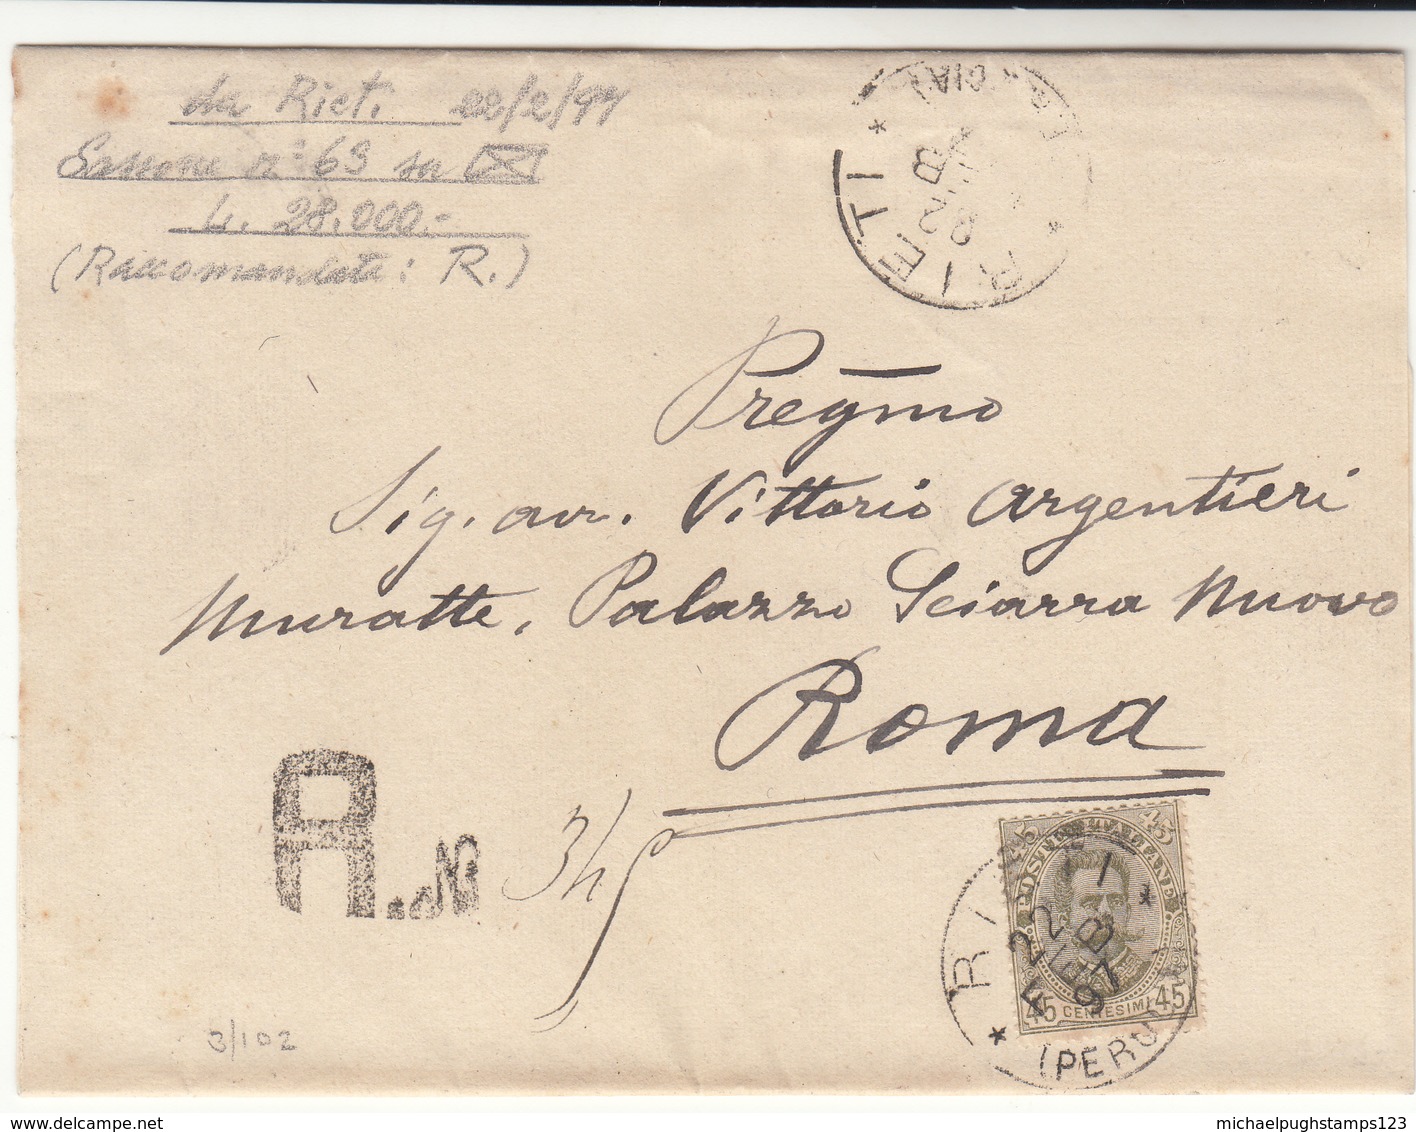 da Rieti 22/2/97
Sassone n° 69 su
L. 28.000.-
(Raccomandata: R.)
RIETI
FEB
Preg̅mo
Sig. avv. Vittorio Argentieri
Muratte, Palazzo Sciarra Nuovo
Roma
R. No 345
POSTE ITALIANE
45 45
22 FEB 97
45 CENTESIMI 45
(PERU
3/102
www.delcampe.net
michaelpughstamps123